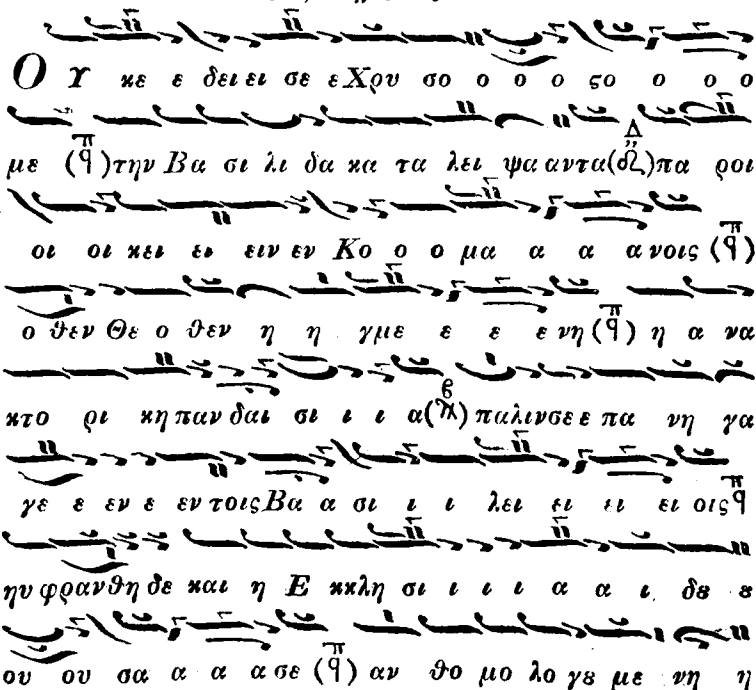 Ο Υ κε ε δει ει σε ε Χρυ σο ο ο ο ςο ο ο ο
με (π q) την Βα σι λι δα κα τα λει ψα αντα (Δ) πα ροι
οι οι κει ει ειν εν Κο ο ο μα α α α νοις (π q)
ο θεν Θε ο θεν η η γμε ε ε ε νη (π q) η α να
κτο ρι κη παν δαι σι ι ι α ( ) παλινσε ε πα νη γα
γε ε εν ε εν τοις Βα α σι ι ι λει ει ει ει οις π q
ηυ φρανθη δε και η Ε κκλη σι ι ι ι α α ι δȣ ȣ
ου ου σα α α α σε (π q) αν θο μο λο γȣ με νη η